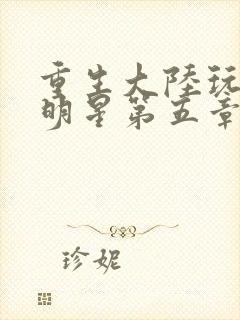 重生大陸玩
明星第五章
珍妮